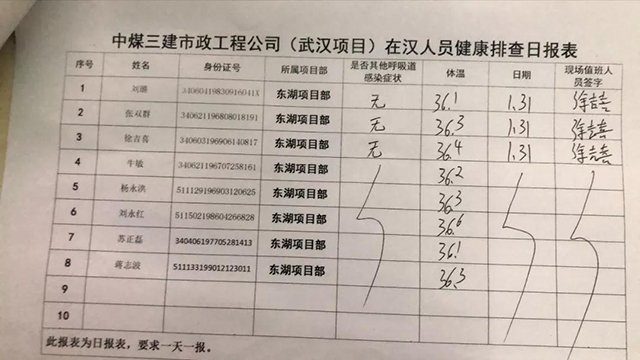 中煤三建市政工程公司（武汉项目）在汉人员健康排查日报表
序号 姓名 身份证号 所属项目部 是否其他呼吸道感染症状 体温 日期 现场值班人员签字
1 刘雅 34060419830916041X 东湖项目部 无 36.1 1.31 徐吉喜
2 张双群 340621196808018191 东湖项目部 无 36.3 1.31 徐吉喜
3 徐吉喜 340603196906140817 东湖项目部 无 36.4 1.31 徐吉喜
4 牛敏 340621196707258161 东湖项目部 36.2
5 杨永洪 511129196903120625 东湖项目部 36.3
6 刘永红 511502198604266828 东湖项目部 36.6
7 苏正磊 340406197705281413 东湖项目部 36.1
8 蒋志波 511133199012123011 东湖项目部 36.3
9
10
此报表为日报表，要求一天一报。